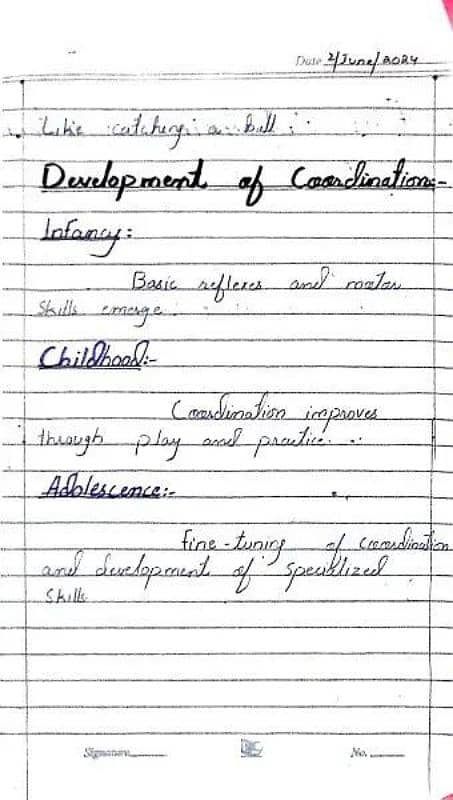 Date 2/June/2024
Like catching a ball :
Development of Coordination:-
Infancy:
Basic reflexes and motor
Skills emerge.
Childhood:-
Coordination improves
through play and practice.
Adolescence:-
fine-tuning of Coordination
and development of specialized
Skills
Signature No.